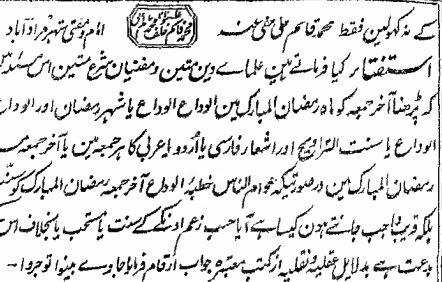 کے نہ کہولین فقط محمد قاسم علی عفی عنہ امام و مفتی شہر مرادآباد
استفتاء کیا فرماتے ہین علماے دین متین و مفتیان شرع متین اس مسئلہ مین
کہ پڑہنا آخر جمعہ کو ماہ رمضان المبارک مین الوداع الوداع یا شہر رمضان اور الوداع
الوداع یا سنت التراویح اور اشعار فارسی یا اردو یا عربی کا ہر جمعہ مین یا آخر جمعہ
رمضان المبارک مین درصورتیکہ عوام الناس خطبہ الوداع آخر جمعہ رمضان المبارک کو سنت
بلکہ قریب واجب جانتے ہون کیسا ہے آیا حسب زعم اونکے سنت یا مستحب یا بخلاف اس
بدعت ہے بدلایل عقلیہ و نقلیہ از کتب معتبرہ جواب ارقام فرمایا جاوے بینوا توجروا ۔